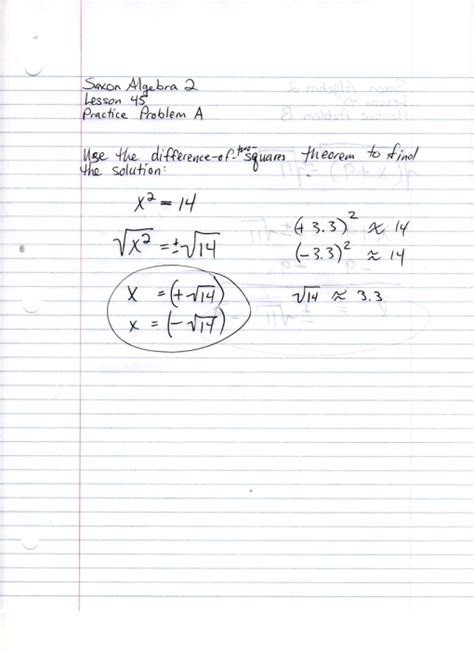 Saxon Algebra 2
Lesson 45
Practice Problem A
Use the difference-of-two-squares theorem to find
the solution:
x² = 14
√x² = ±√14
x = (+√14)
x = (-√14)
(+3.3)² ≈ 14
(-3.3)² ≈ 14
√14 ≈ 3.3